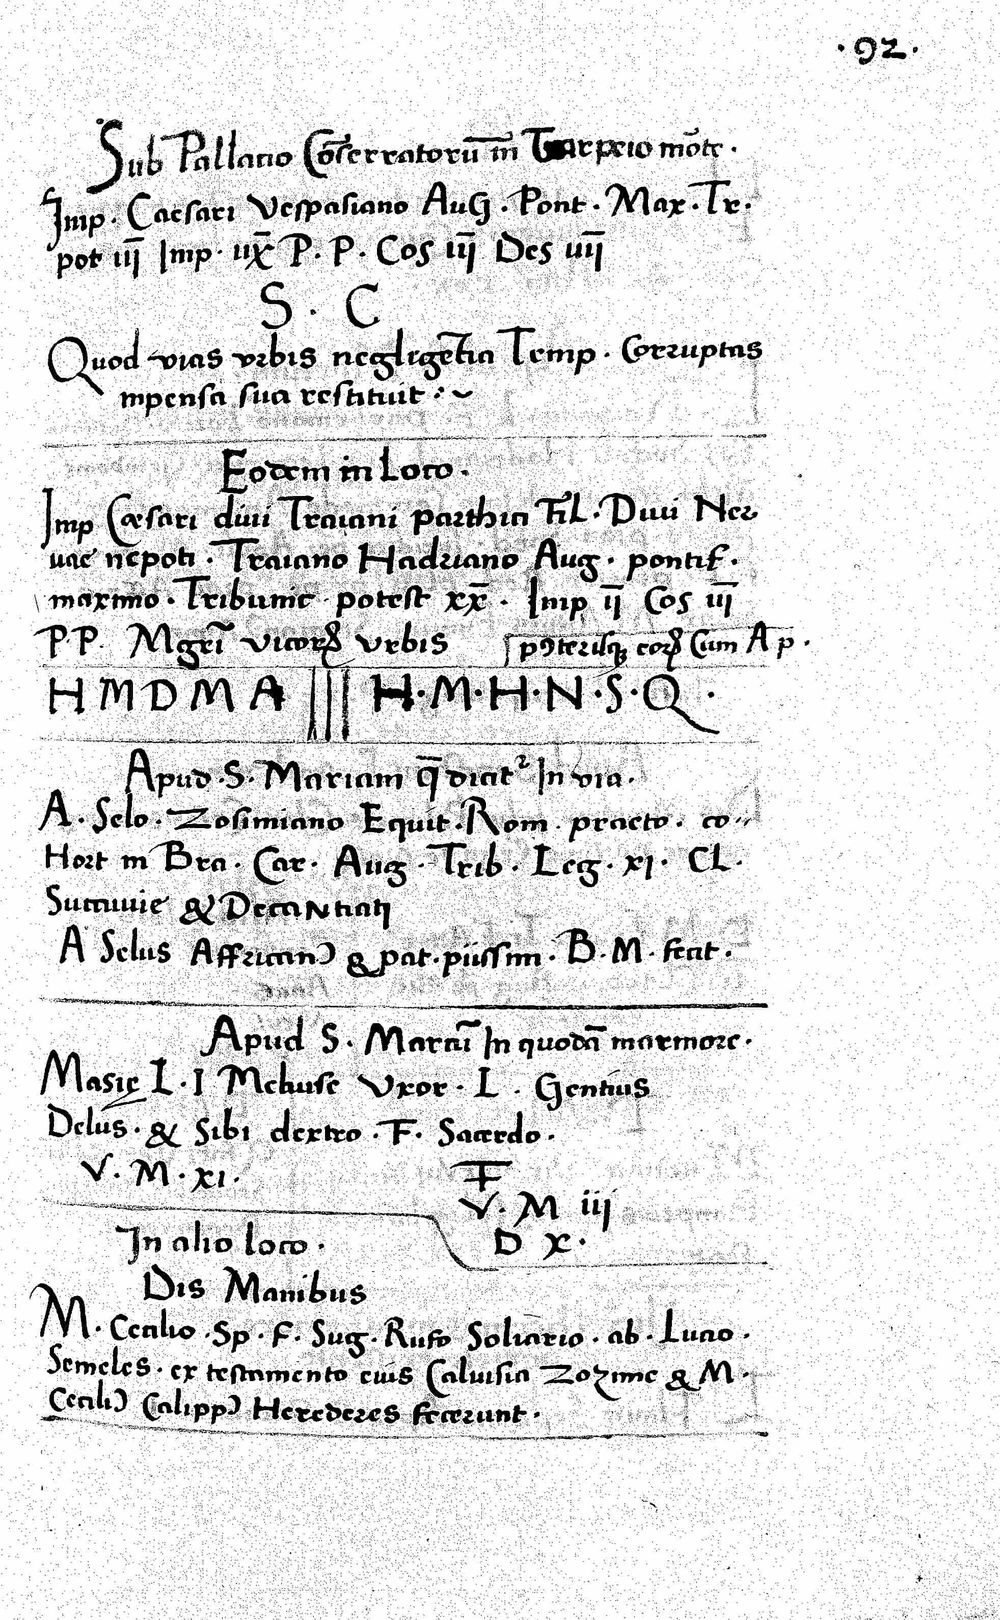 ·92·
Sub Pallatio Cōserratorū in̄ Tarpeio mōte·
Imp· Caesari Vespasiano AuG· Pont· Max· Tr·
pot iiī Imp· iix̄ P· P· Cos iiī Des uiī
S · C
Quod vias vrbis neglegētia Temp· Corruptas
inpensa sua restituit
Eodem in Loco·
Imp Cæsari diui Traiani parthici FiL· Diui Ner
uae nēpoti· Traiano Hadriano Aug· pontif·
maximo· Tribunic potest xx̄· Imp iī Cos iiī
P P· Mgrī vicorꝝ vrbis pꝰterisqꝫ corꝝ Cum A p·
H M D M A H·M·H·N·S·Q·
Apud·S·Mariam q̄ dicit² In via·
A· Selo· Zosimiano Equit· Rom· praeto· co
Hort in Bra· Car· Aug· Trib· Leg· xi· CL·
Succuuie & DecaNtiati
A Selus Affricanꝰ & pat·piissim· B·M· fecit·
Apud S· Marcū In quodā marmore·
Masię L·I Mehuse Vxor· L· Gentius
Delus· & Sibi dextro· F· Sacerdo·
V· M· xi·
F
V· M iij
D x·
In alio loco·
Dis Manibus
M· Cecilio ·Sp·F· Sug· Rufo Soliario·ab·Lucio·
Semeles· ex testamento eius Caluisia Zozime & M·
Ceciliꝰ Calippꝰ Herederes fecerunt·